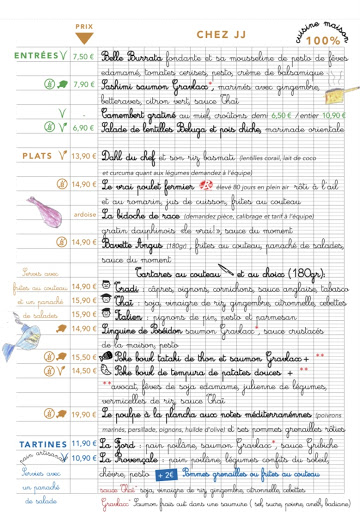 PRIX
CHEZ JJ
cuisine maison
100%
ENTRÉES V 7,50 € Belle Burrata fondante et sa mousseline de pesto de fèves
edamamé, tomates cerises, pesto, crème de balsamique
7,90 € Sashimi saumon Gravlax*, marinés avec gingembre,
betteraves, citron vert, sauce Thaï
V - Camembert gratiné au miel, croûtons demi 6,50 € / entier 10,90 €
V 6,90 € Salade de lentilles Beluga et pois chiche, marinade orientale
PLATS V 13,90 € Dahl du chef et son riz basmati (lentilles corail, lait de coco
et curcuma quant aux légumes demandez à l'équipe)
14,90 € Le vrai poulet fermier élevé 80 jours en plein air rôti à l'ail
et au romarin, jus de cuisson, frites au couteau
ardoise La bidoche de race (demandez pièce, calibrage et tarif à l'équipe)
gratin dauphinois "le vrai!", sauce du moment
14,90 € Bavette Angus (180gr), frites au couteau, panaché de salades,
sauce du moment
Tartares au couteau et au choix (180gr):
Servies avec
frites au couteau
et un panaché
de salades
14,90 € Tradi : câpres, oignons, cornichons, sauce anglaise, tabasco
15,90 € Thaï : soja, vinaigre de riz, gingembre, citronnelle, cebettes
15,90 € Italien : pignons de pin, pesto et parmesan
14,90 € Linguine de Poséidon saumon Gravlax*, sauce crustacés
de la maison, pesto
15,50 € Poke bowl tataki de thon et saumon Gravlax + **
V 14,50 € Poke bowl de tempura de patates douces + **
**avocat, fèves de soja edamame, julienne de légumes,
vermicelles de riz, sauce Thaï
19,90 € Le poulpe à la plancha aux notes méditerranéennes (poivrons
marinés, persillade, oignons, huile d'olive) et ses pommes grenailles rôties
TARTINES 11,90 € La Fjord : pain poilâne, saumon Gravlax*, sauce Gribiche
pain artisanal
V 10,90 € La Provençale : pain poilâne, légumes confits du soleil,
chèvre, pesto + 2€ Pommes grenailles ou frites au couteau
Servies avec
un panaché
de salade
sauce Thaï : soja, vinaigre de riz, gingembre, citronnelle, cebettes
Gravlax*: Saumon frais cuit dans une saumure ( sel, sucre, poivre, aneth, badiane)